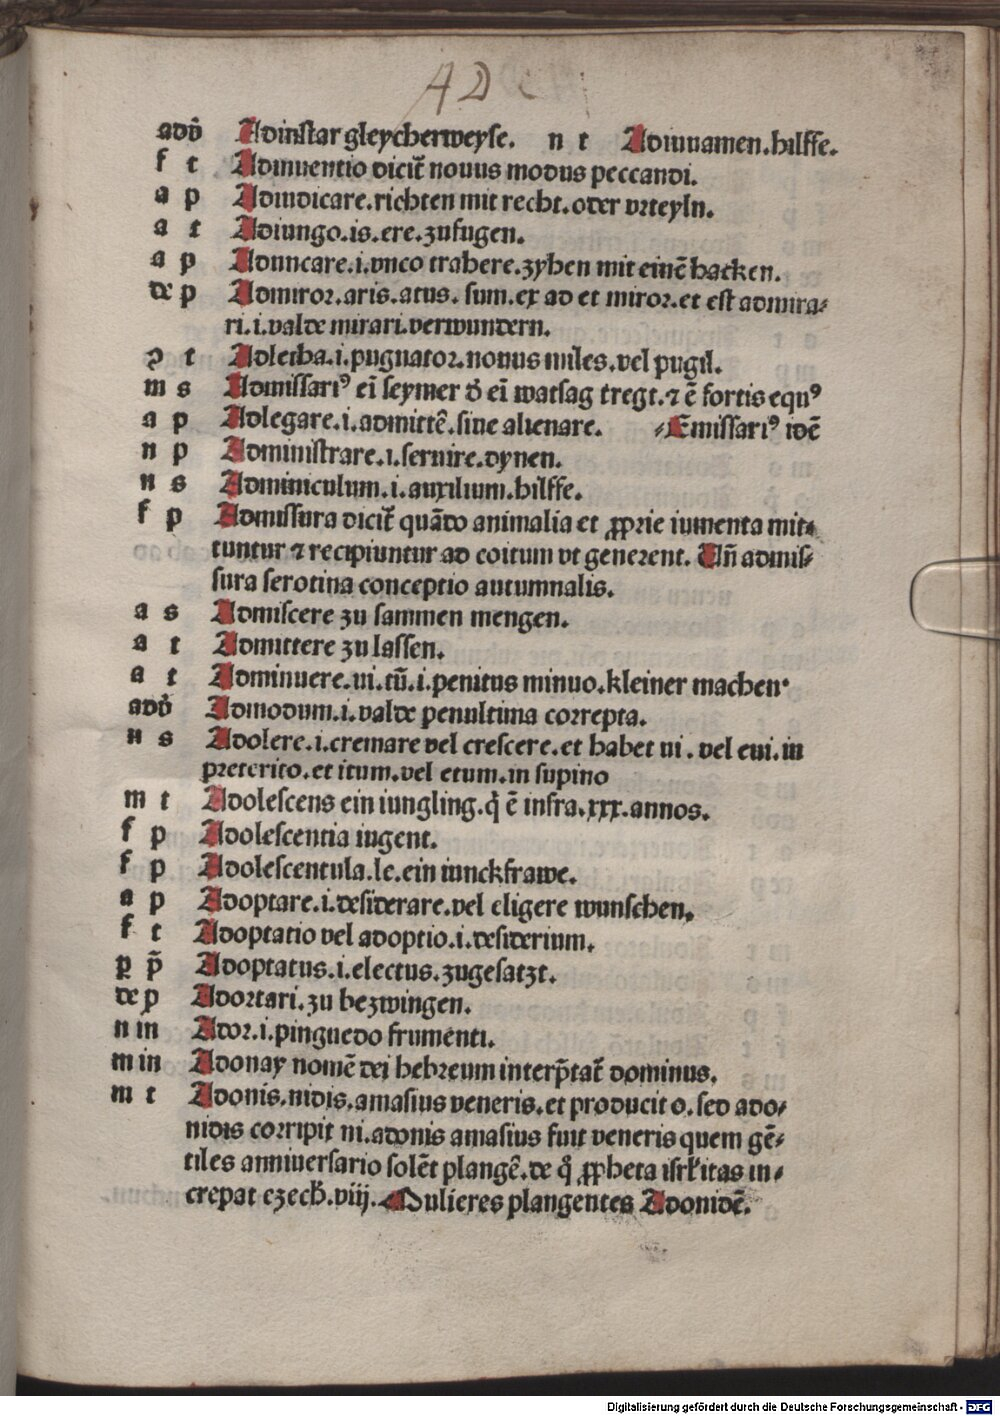 AD
adv̄ Adinstar gleycherweyse. n t Adiuuamen.hilffe.
f t Adinuentio dicit̄ nouus modus peccandi.
a p Adiudicare.richten mit recht.oder vrteyln.
a t Adiungo.is.ere.zufugen.
a p Aduncare.i.vnco trahere.zyhen mit einē hacken.
de p Admiror.aris.atus.sum.ex ad et miror.et est admira⸗
ri.i.valde mirari.verwundern.
ꝯ t Adletha.i.pugnator.nouus miles.vel pugil.
m s Admissariꝰ eī seymer d̄ eī watsag tregt.⁊ ē fortis equꝰ
a p Adlegare.i.admittē.siue alienare. ⸗Emissariꝰ idē
n p Administrare.i.seruire.dynen.
n s Adminiculum.i.auxilium.hilffe.
f p Admissura dicit̄ quādo animalia et ꝓprie iumenta mit⸗
tuntur ⁊ recipiuntur ad coitum vt generent. Un̄ admis⸗
sura serotina conceptio autumnalis.
a s Admiscere zu sammen mengen.
a t Admittere zu lassen.
a t Adminuere.ui.tū.i.penitus minuo.kleiner machen.
adv̄ Admodum.i.valde penultima correpta.
n s Adolere.i.cremare vel crescere.et habet ui.vel eui.in
preterito.et itum.vel etum.in supino
m t Adolescens ein iungling.q̄ ē infra.xxx.annos.
f p Adolescentia iugent.
f p Adolescentula.le.ein iunckfrawe.
a p Adoptare.i.desiderare.vel eligere wunschen.
f t Adoptatio vel adoptio.i.desiderium.
ꝑ p̄ Adoptatus.i.electus.zugesatzt.
de p Adortari.zu bezwingen.
n in Ador.i.pinguedo frumenti.
m in Adonay nomē dei hebreum interp̄tat̄ dominus.
m t Adonis.nidis.amasius veneris.et producit o.sed ado⸗
nidis corripit ni.adonis amasius fuit veneris quem gē⸗
tiles anniuersario solēt plangē.de q̊ ꝓpheta isrl̄itas in⸗
crepat ezech̄.viij.Mulieres plangentes Adonidē.
Digitalisierung gefördert durch die Deutsche Forschungsgemeinschaft - DFG